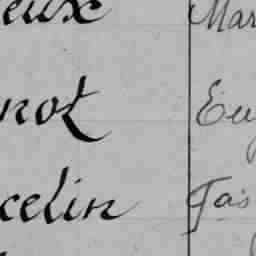 eux Mar
not Eug
celin Gas